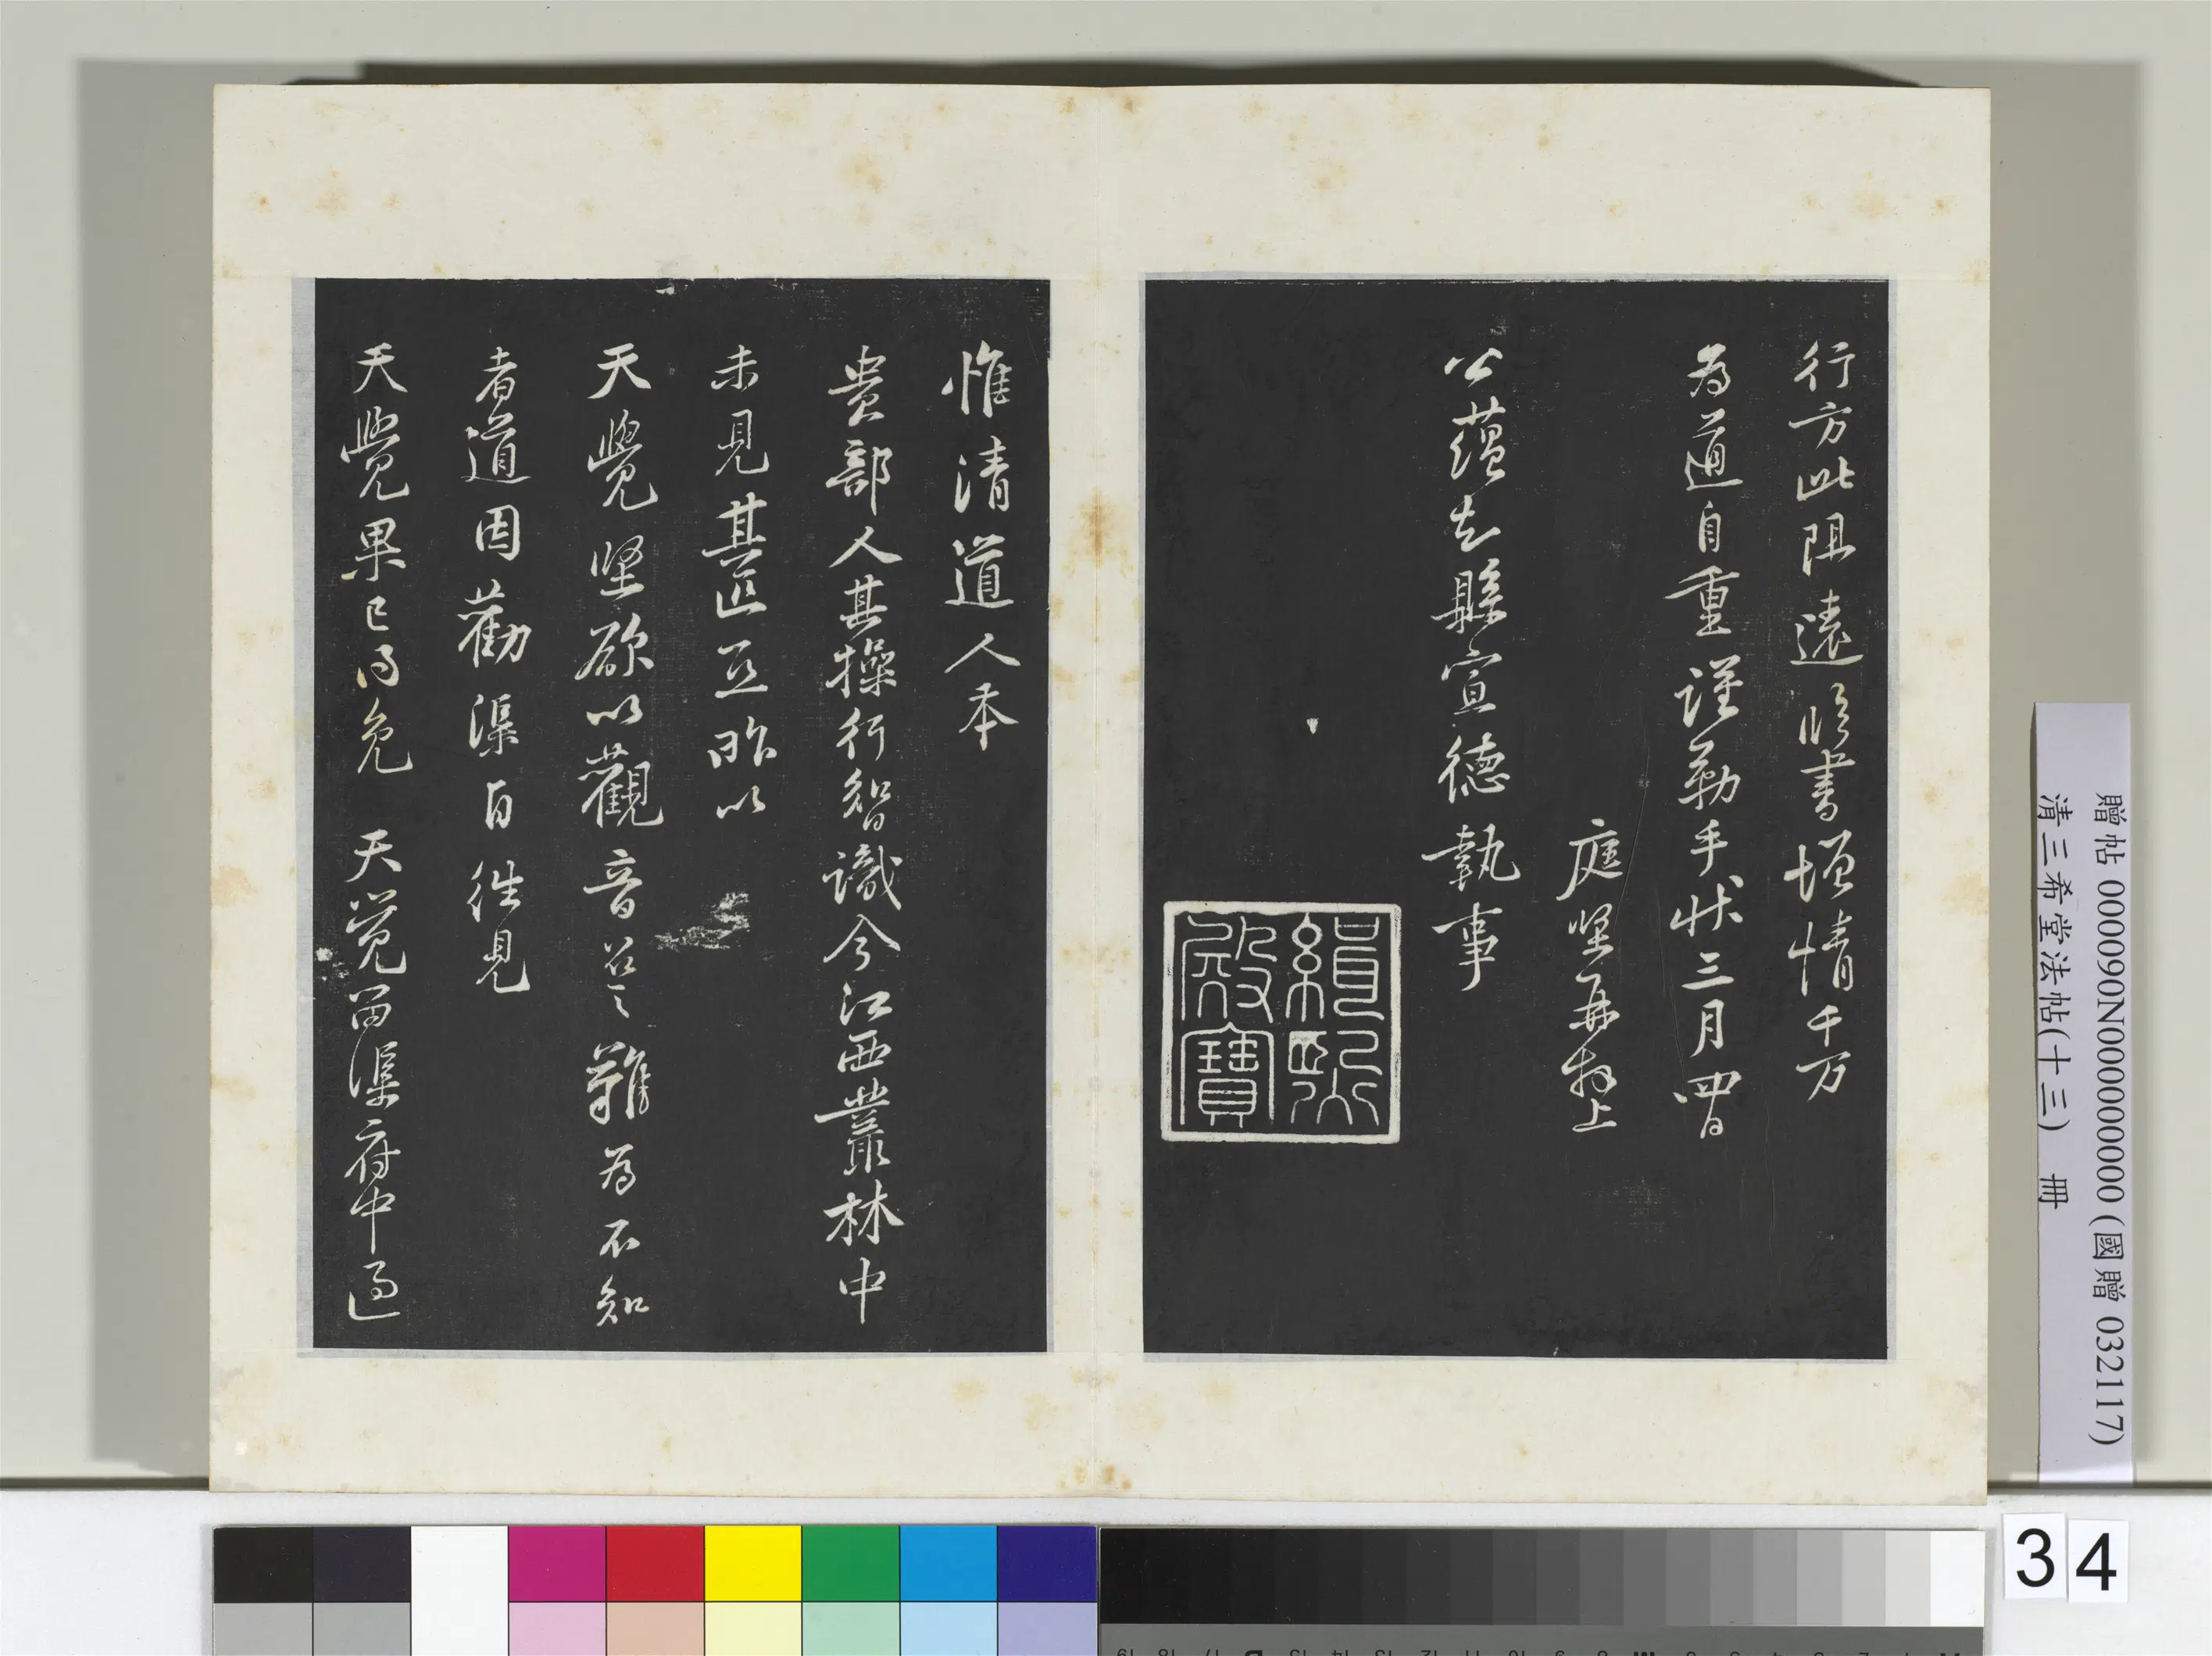 行方此阻遠臨書增情千万
為道自重謹勒手狀三月四日
庭堅再拜上
公蘊知縣宣德執事
緝熙殿寶
惟清道人本
貴部人其操行智識今江西叢林中
未見其匹亞昨以
天覺堅欲以觀音召之難為不知
者道因勸渠自往見
天覺果已得免天覺留渠府中過
贈帖 000090N000000000 (國贈 032117)
清三希堂法帖(十三) 冊
34